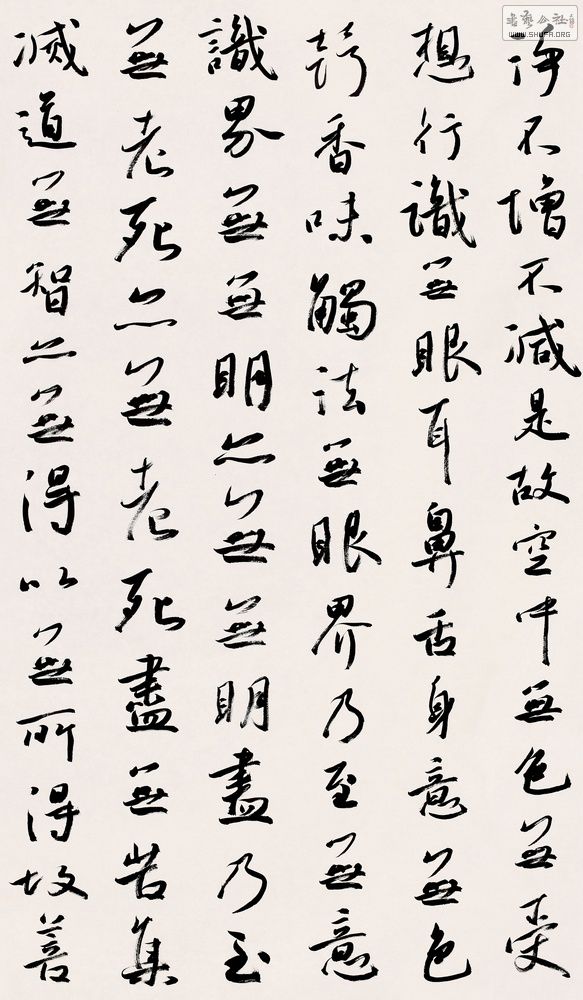 淨不增不減是故空中無色無受
想行識無眼耳鼻舌身意無色
聲香味觸法無眼界乃至無意
識界無無明亦無無明盡乃至
無老死亦無老死盡無苦集
滅道無智亦無得以無所得故菩
書藝公社
WWW.SHUFA.ORG